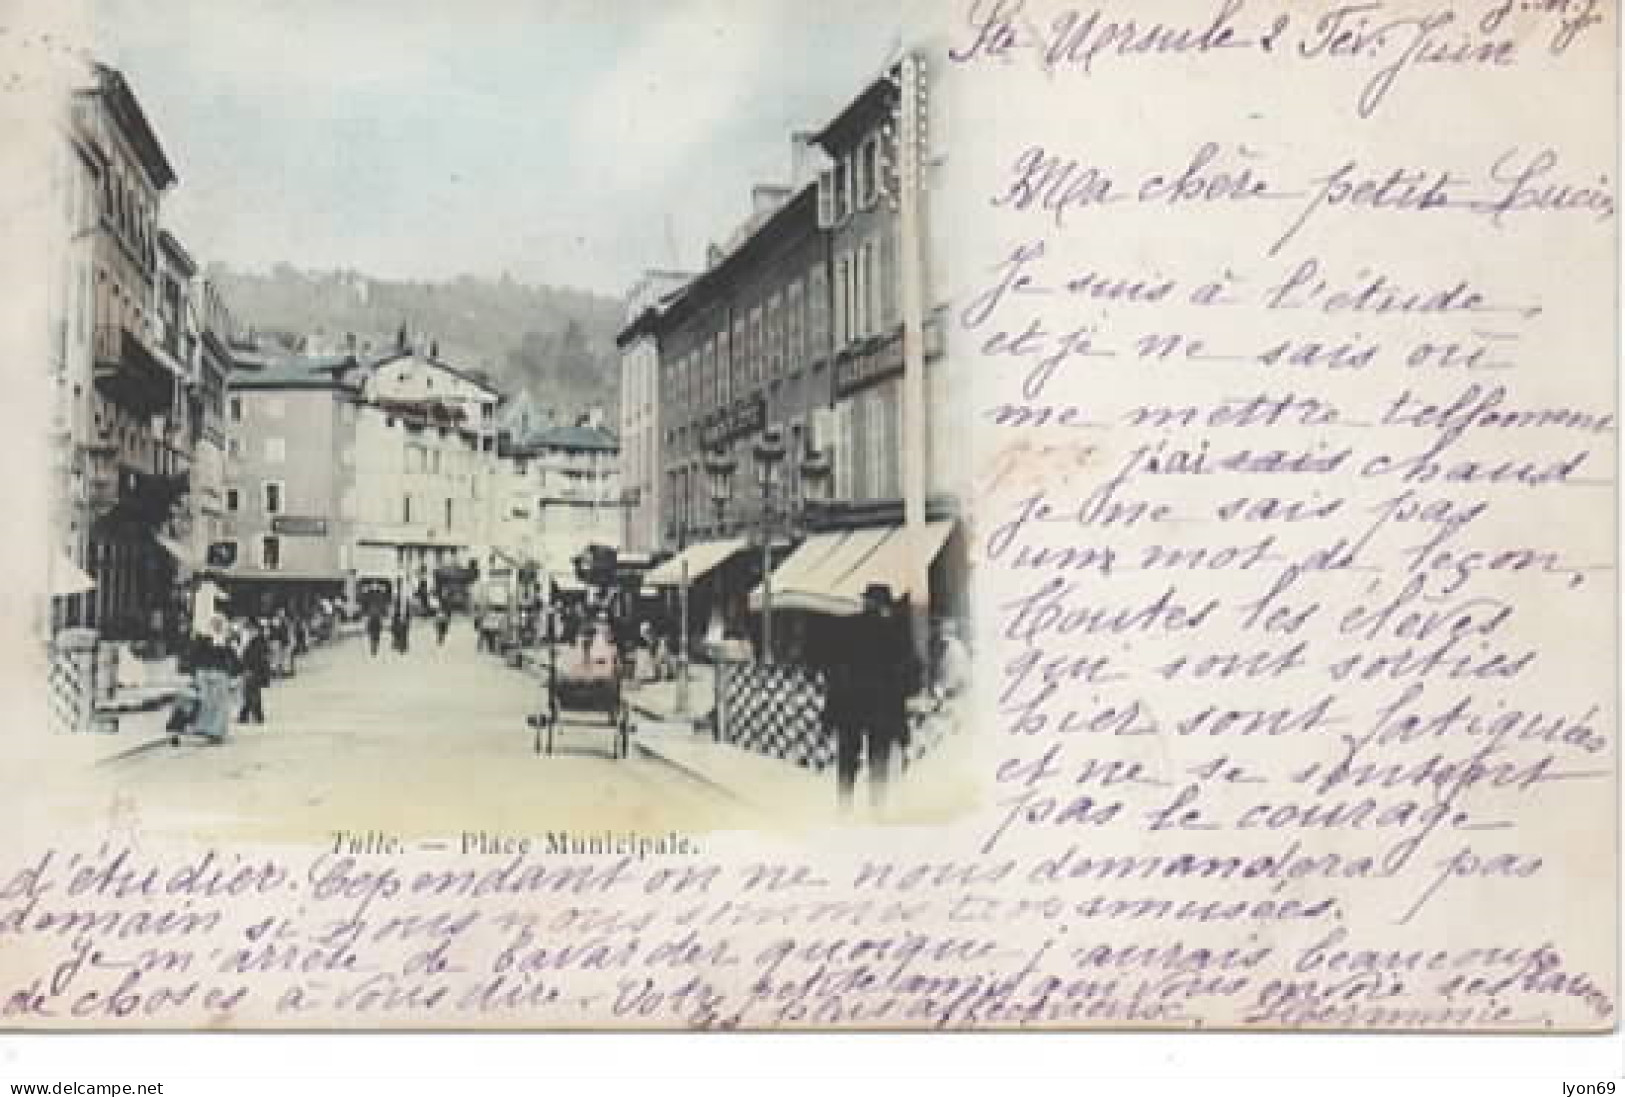 J.M.J.
Ste Ursule 2 Juin
Ma chère petite Lucie,
Je suis à l'étude,
et je ne sais où
me mettre tellement
j'ai chaud
je ne sais pas
un mot de leçon,
Toutes les élèves
qui sont sorties
hier sont fatiguées
et ne se sentent
pas le courage
Tulle. — Place Municipale.
d'étudier. Cependant on ne nous demandera pas
demain si nous nous sommes trop amusées.
Je m'arrête de bavarder quoique j'aurais beaucoup
de choses à vous dire. Votre petite amie qui vous envoie ses
plus affectueux. Herminie.
www.delcampe.net
lyon69